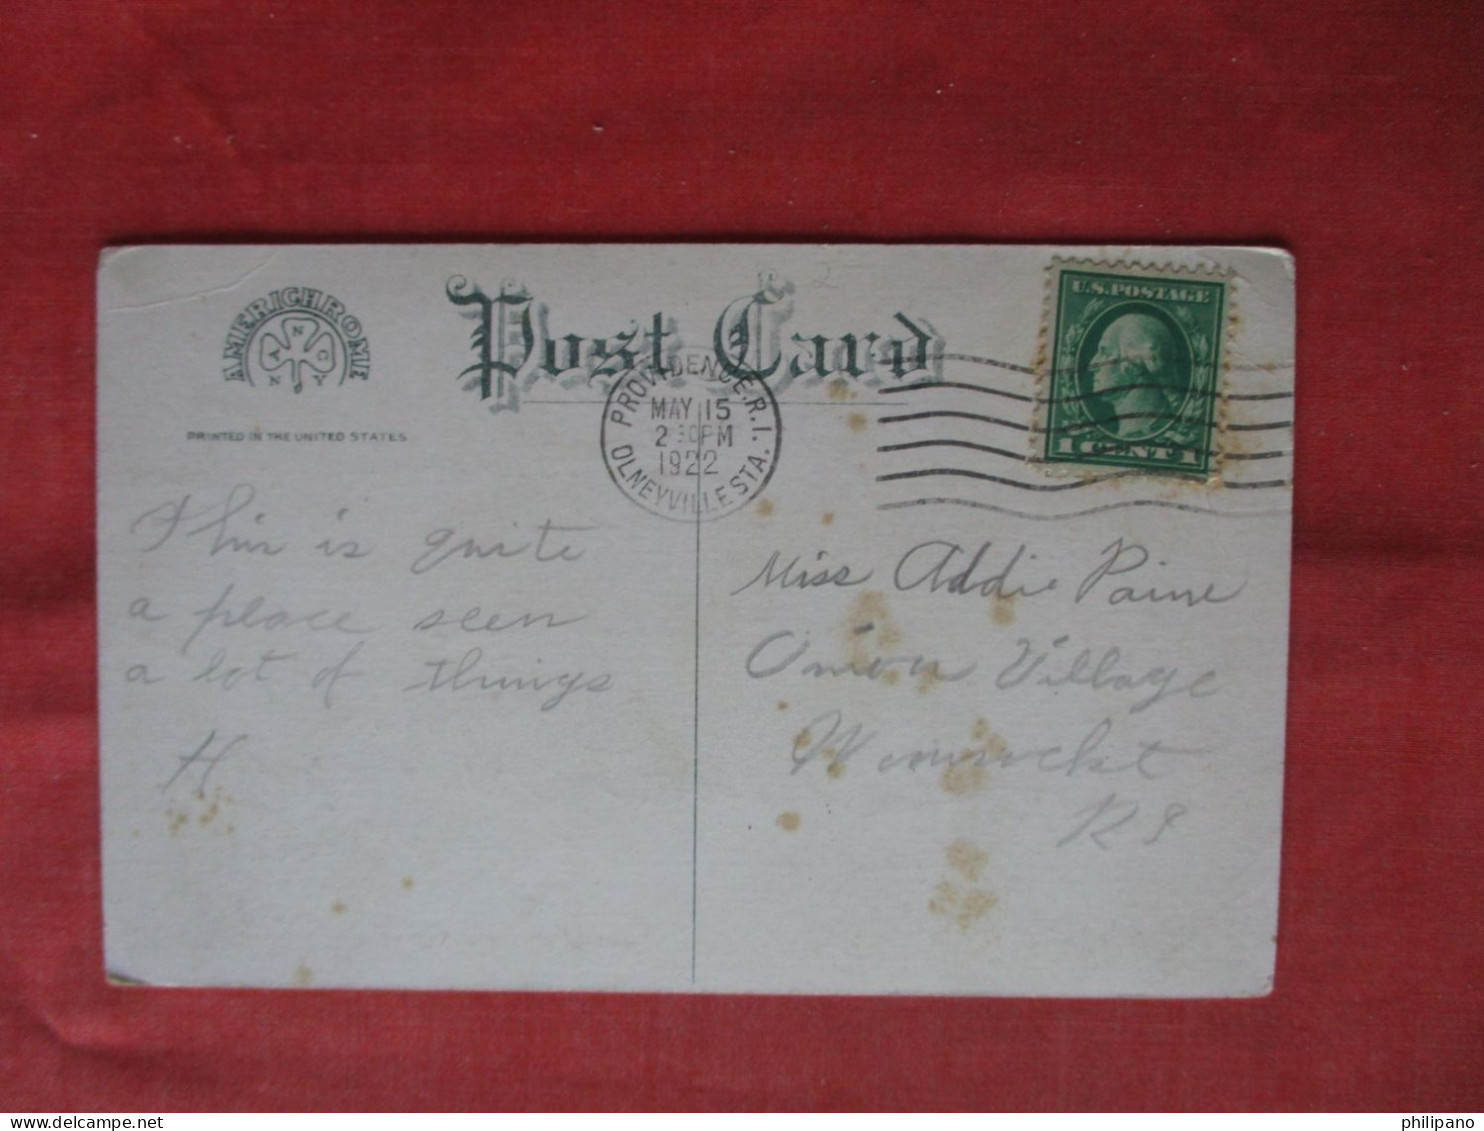 AMERICHROME
A N C
N Y
PRINTED IN THE UNITED STATES
Post Card
2
PROVIDENCE, R.I.
MAY 15
2 30PM
1922
OLNEYVILLE STA.
U.S. POSTAGE
1 CENT 1
This is quite
a place seen
a lot of things
H
Miss Addie Paine
Union Village
Woonsocket
RI
philipano